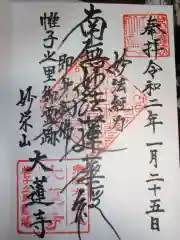 奉拝 令和二年一月二十五日
妙法経力
南無妙法蓮華経
即身成佛
帷子之里御霊跡
妙栄山 大蓮寺